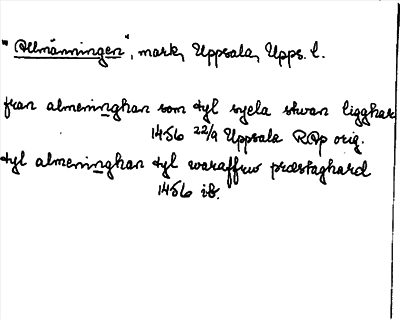 "Allmänningen", mark, Uppsala, Upps. l.
fran almeninghan som tyl syela skwan ligghar
1456 22/9 Uppsala RAp orig.
tyl almeninghan tyl waraffrw præstaghard
1456 ib.